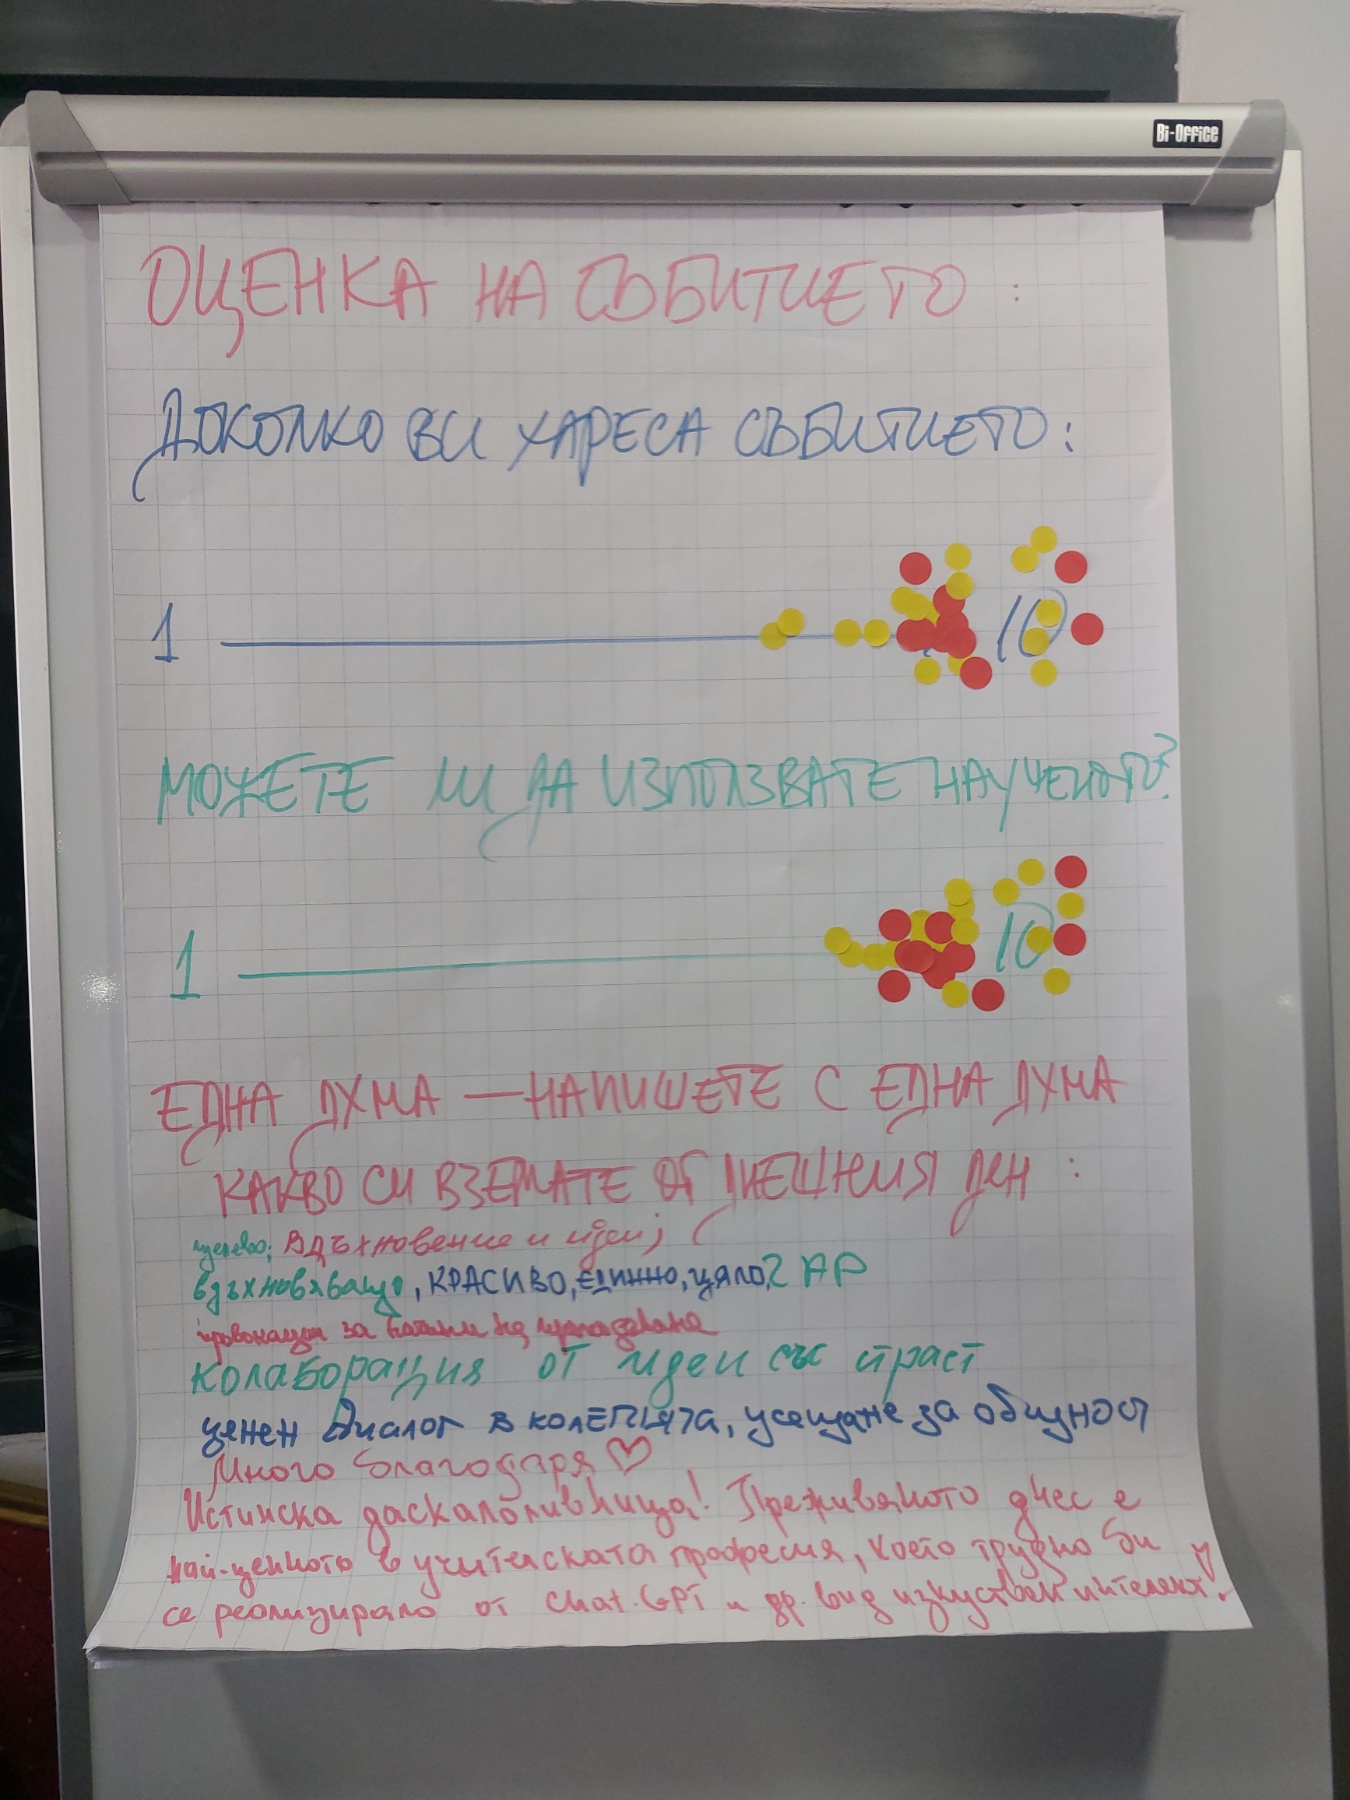 Bi-Office
ОЦЕНКА НА СЪБИТИЕТО :
ДОКОЛКО ВИ ХАРЕСА СЪБИТИЕТО :
1 10
МОЖЕТЕ ЛИ ДА ИЗПОЛЗВАТЕ НАУЧЕНОТО?
1 10
ЕДНА ДУМА — НАПИШЕТЕ С ЕДНА ДУМА
КАКВО СИ ВЗЕМАТЕ ОТ ДНЕШНИЯ ДЕН :
Вдъхновение и идеи;
вдъхновяващо, КРАСИВО, ЕДИННО, цяло, 2 АР
провокация за начини на преподаване
Колаборация от идеи със страст
ценен диалог в колегията, усещане за общност
Много благодаря ♡
Истинска даскалоливница! Преживяното днес е
най-ценното в учителската професия, което трудно би
се реализирало от Chat.GPT и др. вид изкуствен интелект!